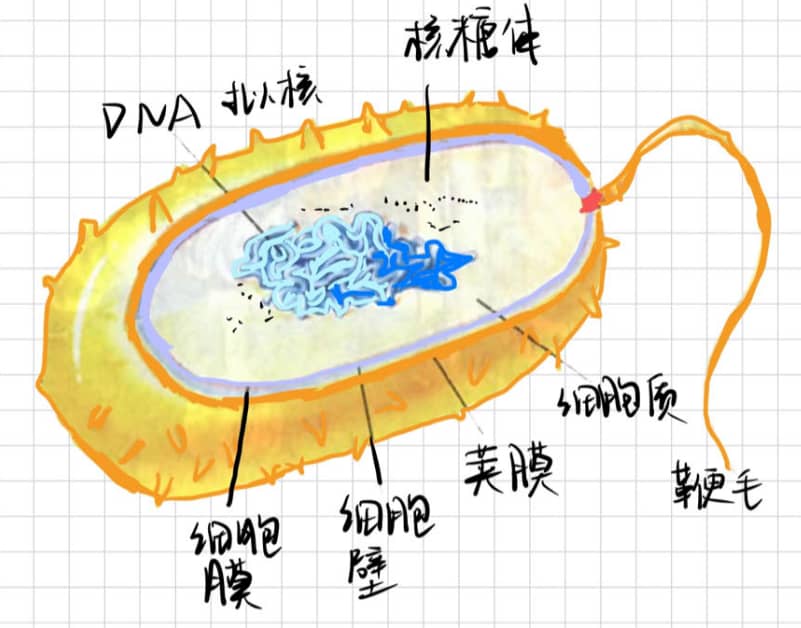 核糖体
DNA 拟核
细胞质
荚膜
鞭毛
细胞
膜
细胞
壁